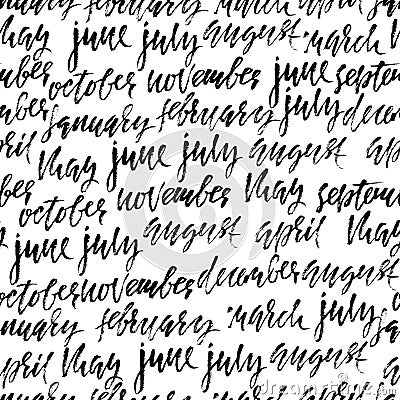 january february march
may june july august march
mber october november june septem
january february july decem
pril may june july august ap
ber october november may septem
june july august april may
october november december august
anuary february march july
april may june july august